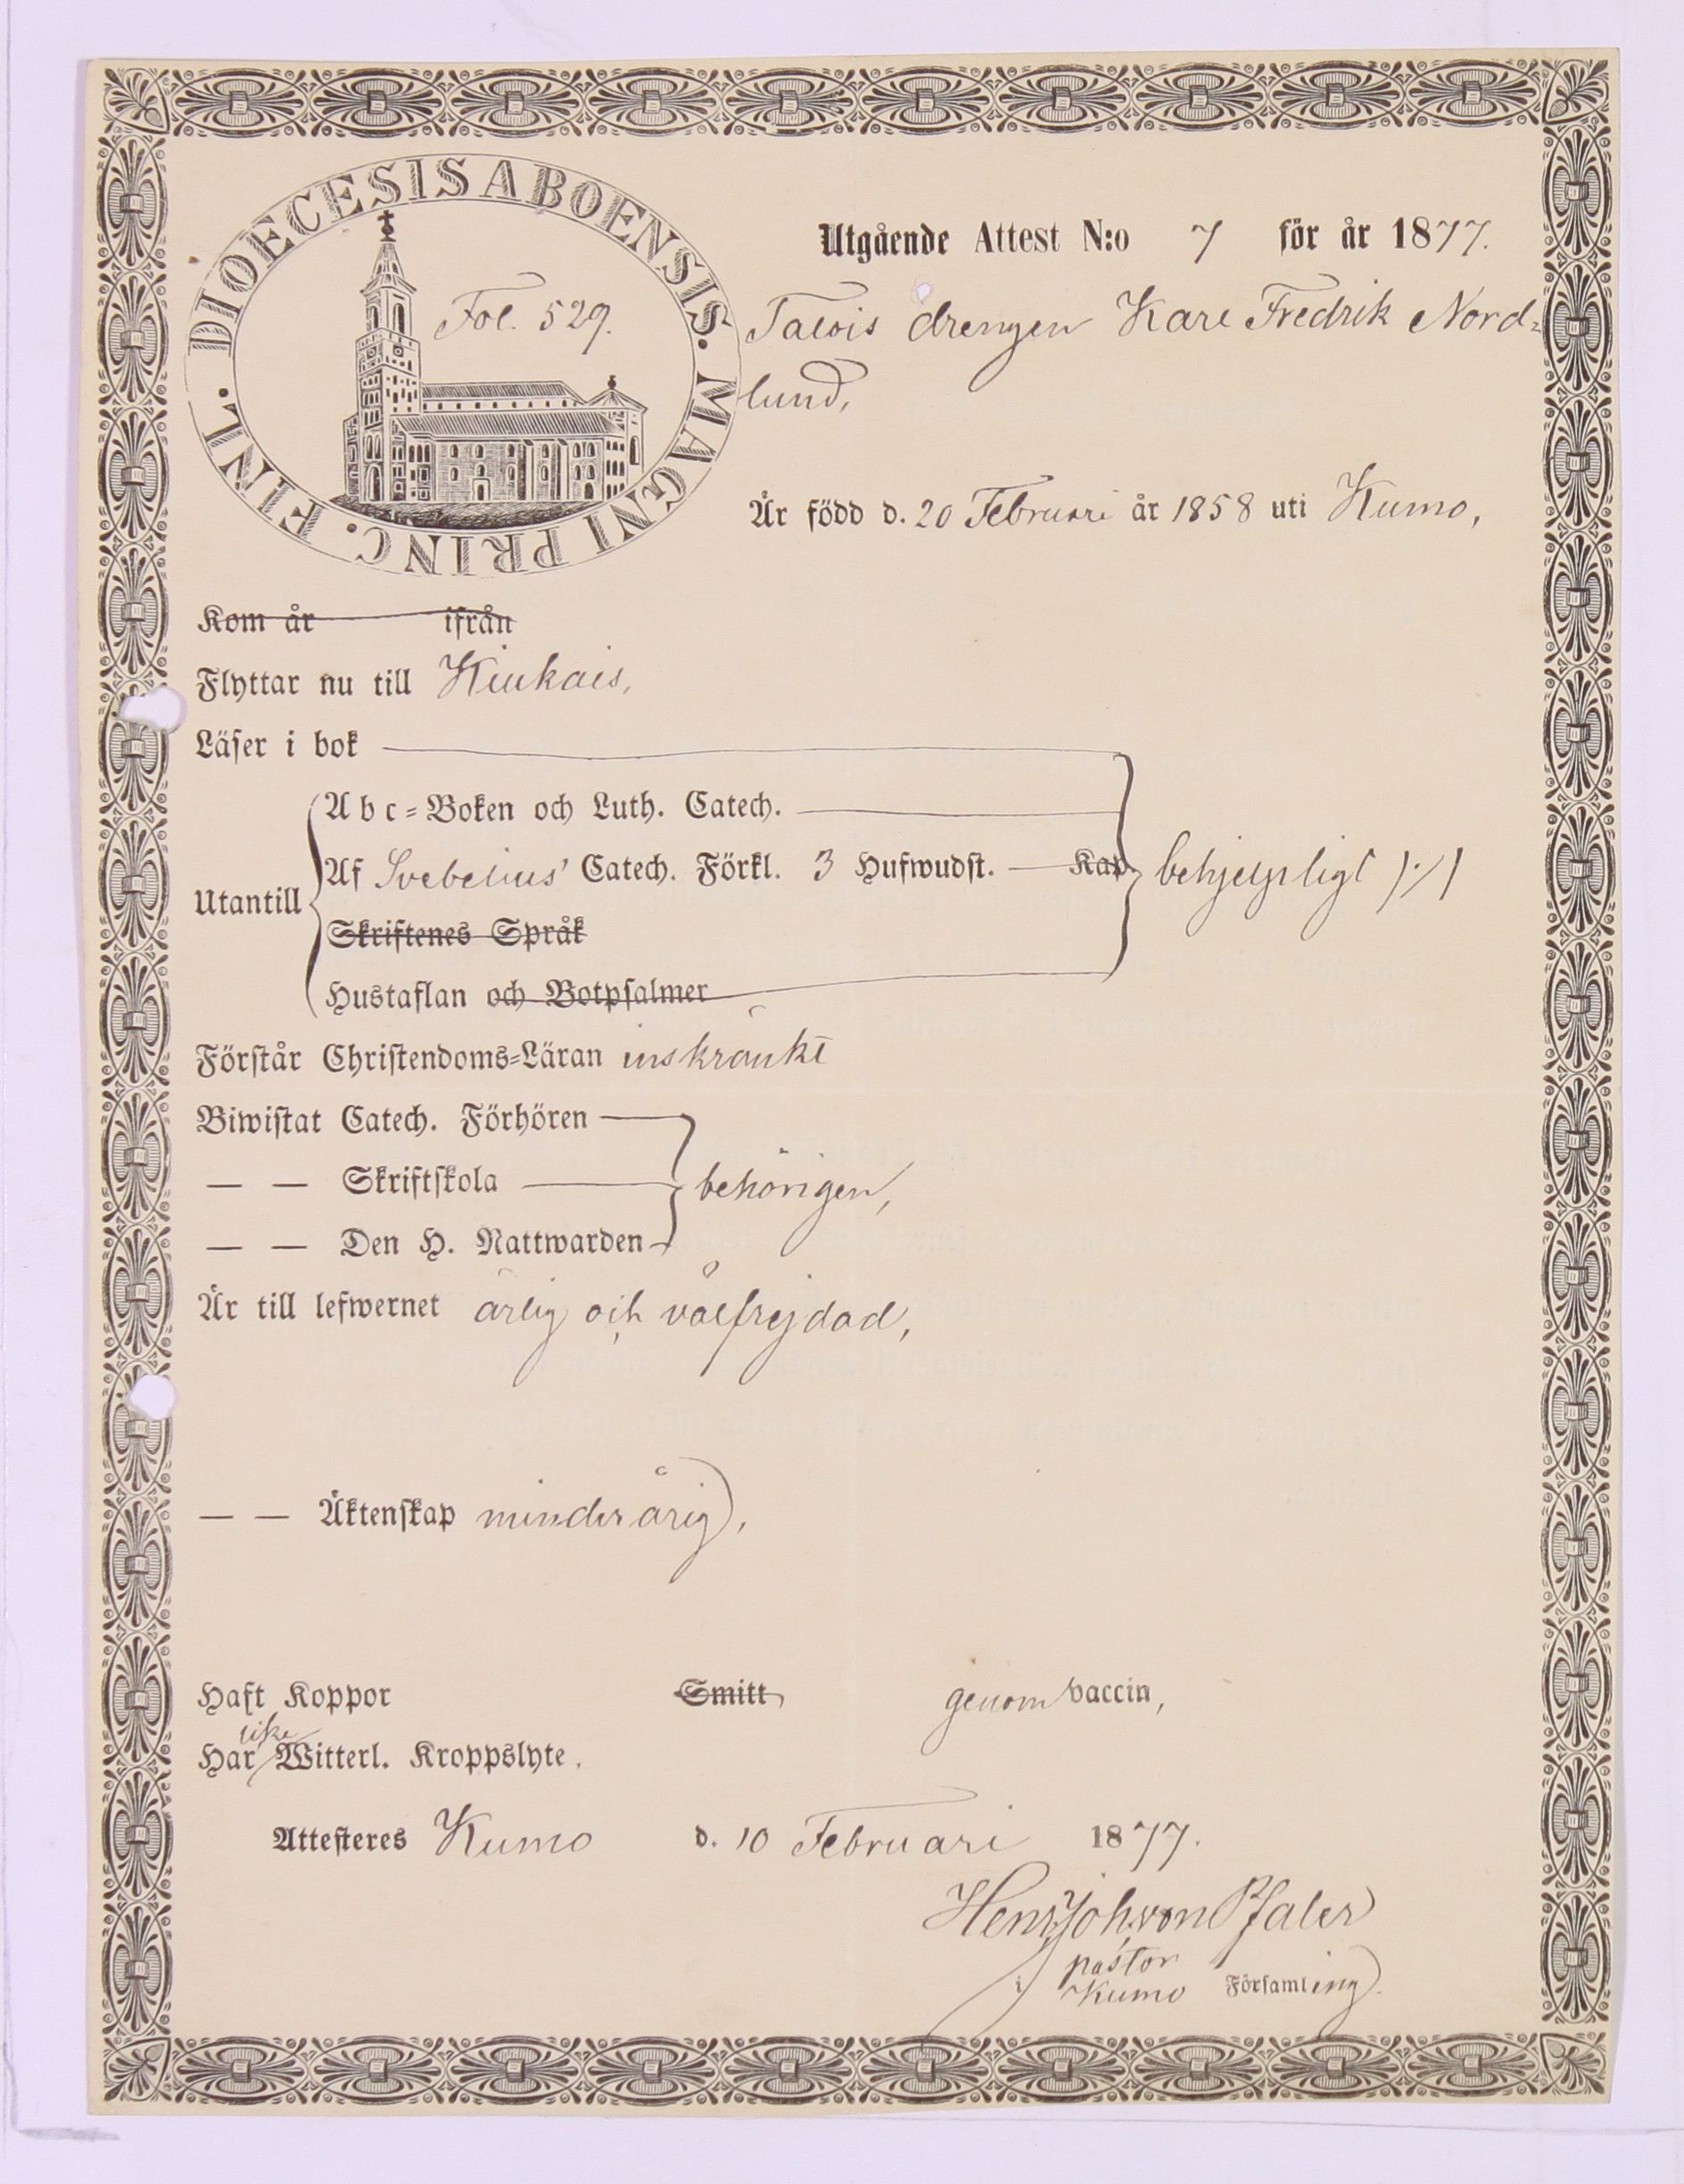 DIOECESIS ABOENSIS. MAGNI PRINC. FINL.
Fol. 529.
Utgående Attest N:o 7 för år 1877.
drengen Karl Fredrik Nord=
lund,
Är född d. 20 Februari år 1858 uti Kumo,
Kom år ifrån
Flyttar nu till Kiukais,
Läser i bok
Abc=Boken och Luth. Catech.
Utantill Af Svebelius' Catech. Förkl. 3 Hufwudst. Kap behjelpligt
Skriftenes Språk
Hustaflan och Botpsalmer
Förstår Christendoms=Läran inskränkt
Biwistat Catech. Förhören
— — Skriftskola behörigen,
— — Den H. Nattwarden
Är till lefwernet ärlig och välfrejdad,
— — Äktenskap minderårig,
Haft Koppor Smitt genom vaccin,
Har icke Witterl. Kroppslyte.
Attesteres Kumo d. 10 Februari 1877.
Henr. Joh. von Pfaler
pastor
i Kumo Församling.